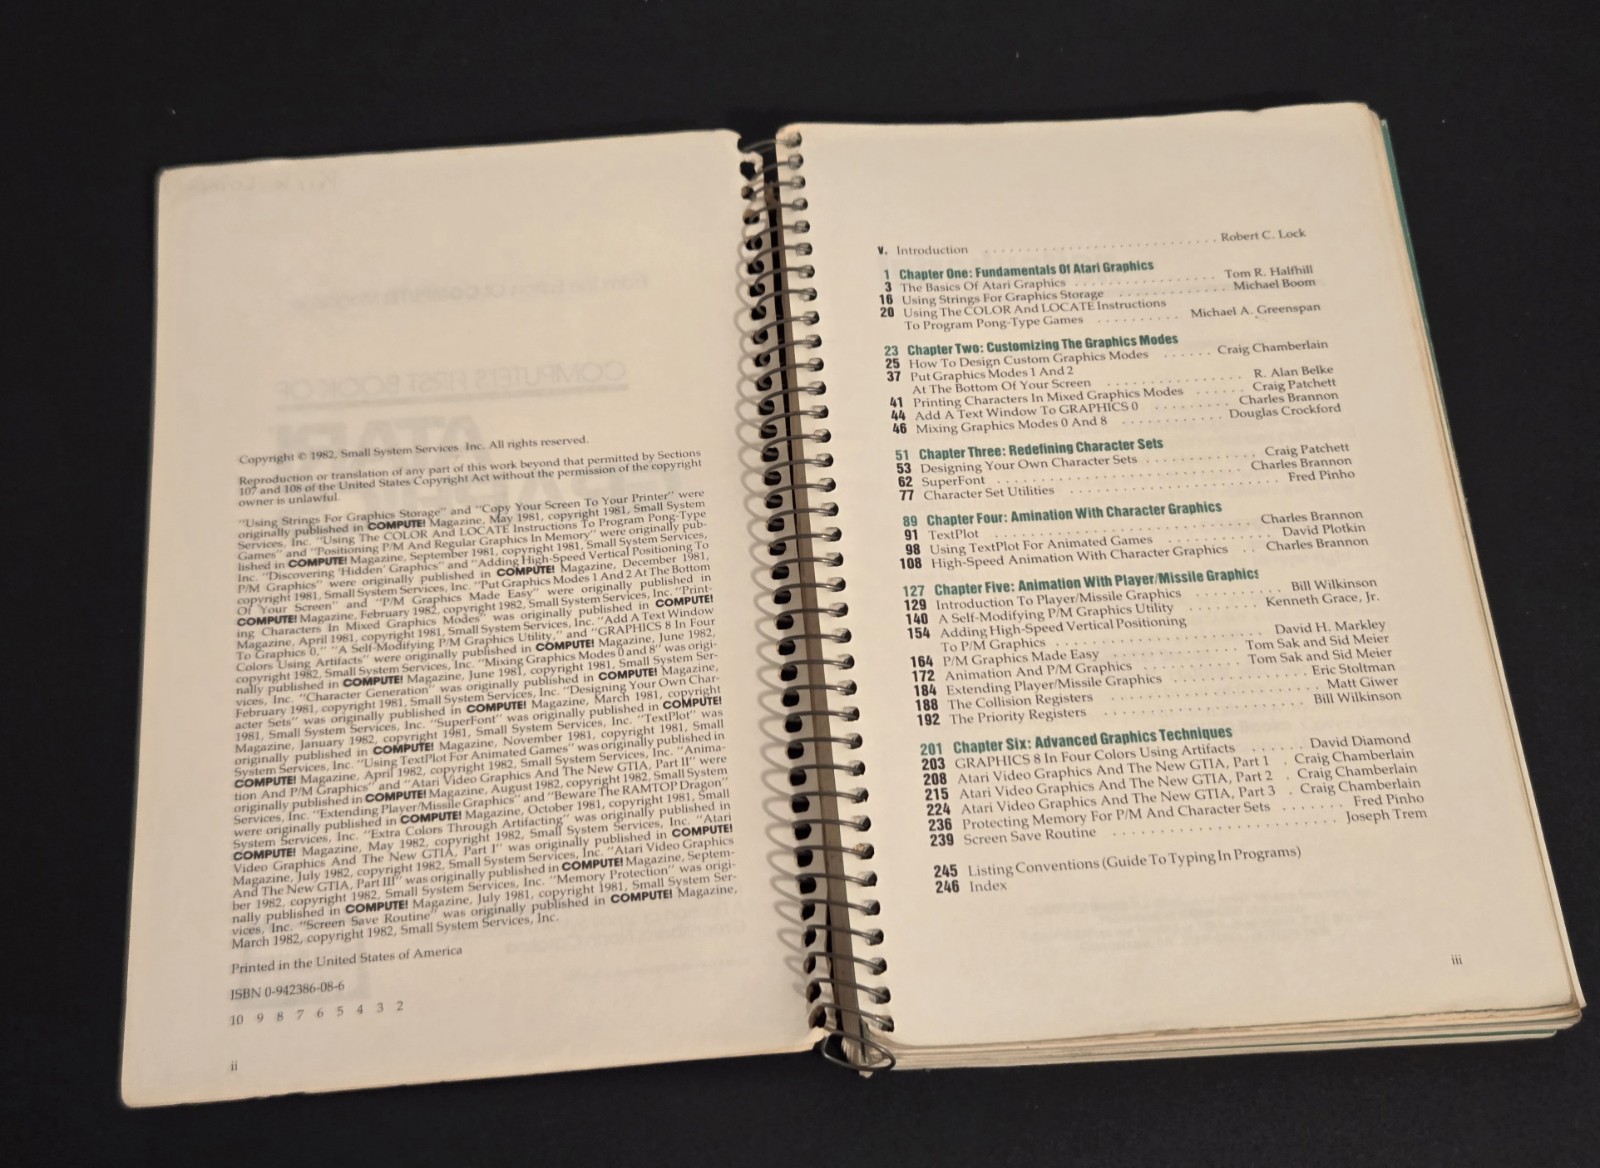 Copyright © 1982, Small System Services Inc. All rights reserved.
Reproduction or translation of any part of this work beyond that permitted by Sections
107 and 108 of the United States Copyright Act without the permission of the copyright
owner is unlawful.
"Using Strings For Graphics Storage" and "Copy Your Screen To Your Printer" were
originally published in COMPUTE! Magazine, May 1981, copyright 1981, Small System
Services, Inc. "Using The COLOR And LOCATE Instructions To Program Pong-Type
Games" and "Positioning P/M And Regular Graphics In Memory" were originally pub-
lished in COMPUTE! Magazine, September 1981, copyright 1981, Small System Services,
Inc. "Discovering 'Hidden' Graphics" and "Adding High-Speed Vertical Positioning To
P/M Graphics" were originally published in COMPUTE! Magazine, December 1981,
copyright 1981, Small System Services, Inc. "Put Graphics Modes 1 And 2 At The Bottom
Of Your Screen" and "P/M Graphics Made Easy" were originally published in
COMPUTE! Magazine, February 1982, copyright 1982, Small System Services, Inc. "Print-
ing Characters In Mixed Graphics Modes" was originally published in COMPUTE!
Magazine, April 1981, copyright 1981, Small System Services, Inc. "Add A Text Window
To Graphics 0," "A Self-Modifying P/M Graphics Utility," and "GRAPHICS 8 In Four
Colors Using Artifacts" were originally published in COMPUTE! Magazine, June 1982,
copyright 1982, Small System Services, Inc. "Mixing Graphics Modes 0 and 8" was origi-
nally published in COMPUTE! Magazine, June 1981, copyright 1981, Small System Ser-
vices, Inc. "Character Generation" was originally published in COMPUTE! Magazine,
February 1981, copyright 1981, Small System Services, Inc. "Designing Your Own Char-
acter Sets" was originally published in COMPUTE! Magazine, March 1981, copyright
1981, Small System Services, Inc. "SuperFont" was originally published in COMPUTE!
Magazine, January 1982, copyright 1981, Small System Services, Inc. "TextPlot" was
originally published in COMPUTE! Magazine, November 1981, copyright 1981, Small
System Services, Inc. "Using TextPlot For Animated Games" was originally published in
COMPUTE! Magazine, April 1982, copyright 1982, Small System Services, Inc. "Anima-
tion And P/M Graphics" and "Atari Video Graphics And The New GTIA, Part II" were
originally published in COMPUTE! Magazine, August 1982, copyright 1982, Small System
Services, Inc. "Extending Player/Missile Graphics" and "Beware The RAMTOP Dragon"
were originally published in COMPUTE! Magazine, October 1981, copyright 1981, Small
System Services, Inc. "Extra Colors Through Artifacting" was originally published in
COMPUTE! Magazine, May 1982, copyright 1982, Small System Services, Inc. "Atari
Video Graphics And The New GTIA, Part I" was originally published in COMPUTE!
Magazine, July 1982, copyright 1982, Small System Services, Inc. "Atari Video Graphics
And The New GTIA, Part III" was originally published in COMPUTE! Magazine, Septem-
ber 1982, copyright 1982, Small System Services, Inc. "Memory Protection" was origi-
nally published in COMPUTE! Magazine, July 1981, copyright 1981, Small System Ser-
vices, Inc. "Screen Save Routine" was originally published in COMPUTE! Magazine,
March 1982, copyright 1982, Small System Services, Inc.
Printed in the United States of America
ISBN 0-942386-08-6
10 9 8 7 6 5 4 3 2
ii
v. Introduction . . . . . Robert C. Lock
1 Chapter One: Fundamentals Of Atari Graphics
3 The Basics Of Atari Graphics . . . . . Tom R. Halfhill
16 Using Strings For Graphics Storage . . . . . Michael Boom
20 Using The COLOR And LOCATE Instructions
To Program Pong-Type Games . . . . . Michael A. Greenspan
23 Chapter Two: Customizing The Graphics Modes
25 How To Design Custom Graphics Modes . . . . . Craig Chamberlain
37 Put Graphics Modes 1 And 2
At The Bottom Of Your Screen . . . . . R. Alan Belke
41 Printing Characters In Mixed Graphics Modes . . . . . Craig Patchett
44 Add A Text Window To GRAPHICS 0 . . . . . Charles Brannon
46 Mixing Graphics Modes 0 And 8 . . . . . Douglas Crockford
51 Chapter Three: Redefining Character Sets
53 Designing Your Own Character Sets . . . . . Craig Patchett
62 SuperFont . . . . . Charles Brannon
77 Character Set Utilities . . . . . Fred Pinho
89 Chapter Four: Amination With Character Graphics
91 TextPlot . . . . . Charles Brannon
98 Using TextPlot For Animated Games . . . . . David Plotkin
108 High-Speed Animation With Character Graphics . . Charles Brannon
127 Chapter Five: Animation With Player/Missile Graphics
129 Introduction To Player/Missile Graphics . . . . . Bill Wilkinson
140 A Self-Modifying P/M Graphics Utility . . . . . Kenneth Grace, Jr.
154 Adding High-Speed Vertical Positioning
To P/M Graphics . . . . . David H. Markley
164 P/M Graphics Made Easy . . . . . Tom Sak and Sid Meier
172 Animation And P/M Graphics . . . . . Tom Sak and Sid Meier
184 Extending Player/Missile Graphics . . . . . Eric Stoltman
188 The Collision Registers . . . . . Matt Giwer
192 The Priority Registers . . . . . Bill Wilkinson
201 Chapter Six: Advanced Graphics Techniques
203 GRAPHICS 8 In Four Colors Using Artifacts . . . . . David Diamond
208 Atari Video Graphics And The New GTIA, Part 1 . Craig Chamberlain
215 Atari Video Graphics And The New GTIA, Part 2 . Craig Chamberlain
224 Atari Video Graphics And The New GTIA, Part 3 . Craig Chamberlain
236 Protecting Memory For P/M And Character Sets . . . . . Fred Pinho
239 Screen Save Routine . . . . . Joseph Trem
245 Listing Conventions (Guide To Typing In Programs)
246 Index
iii